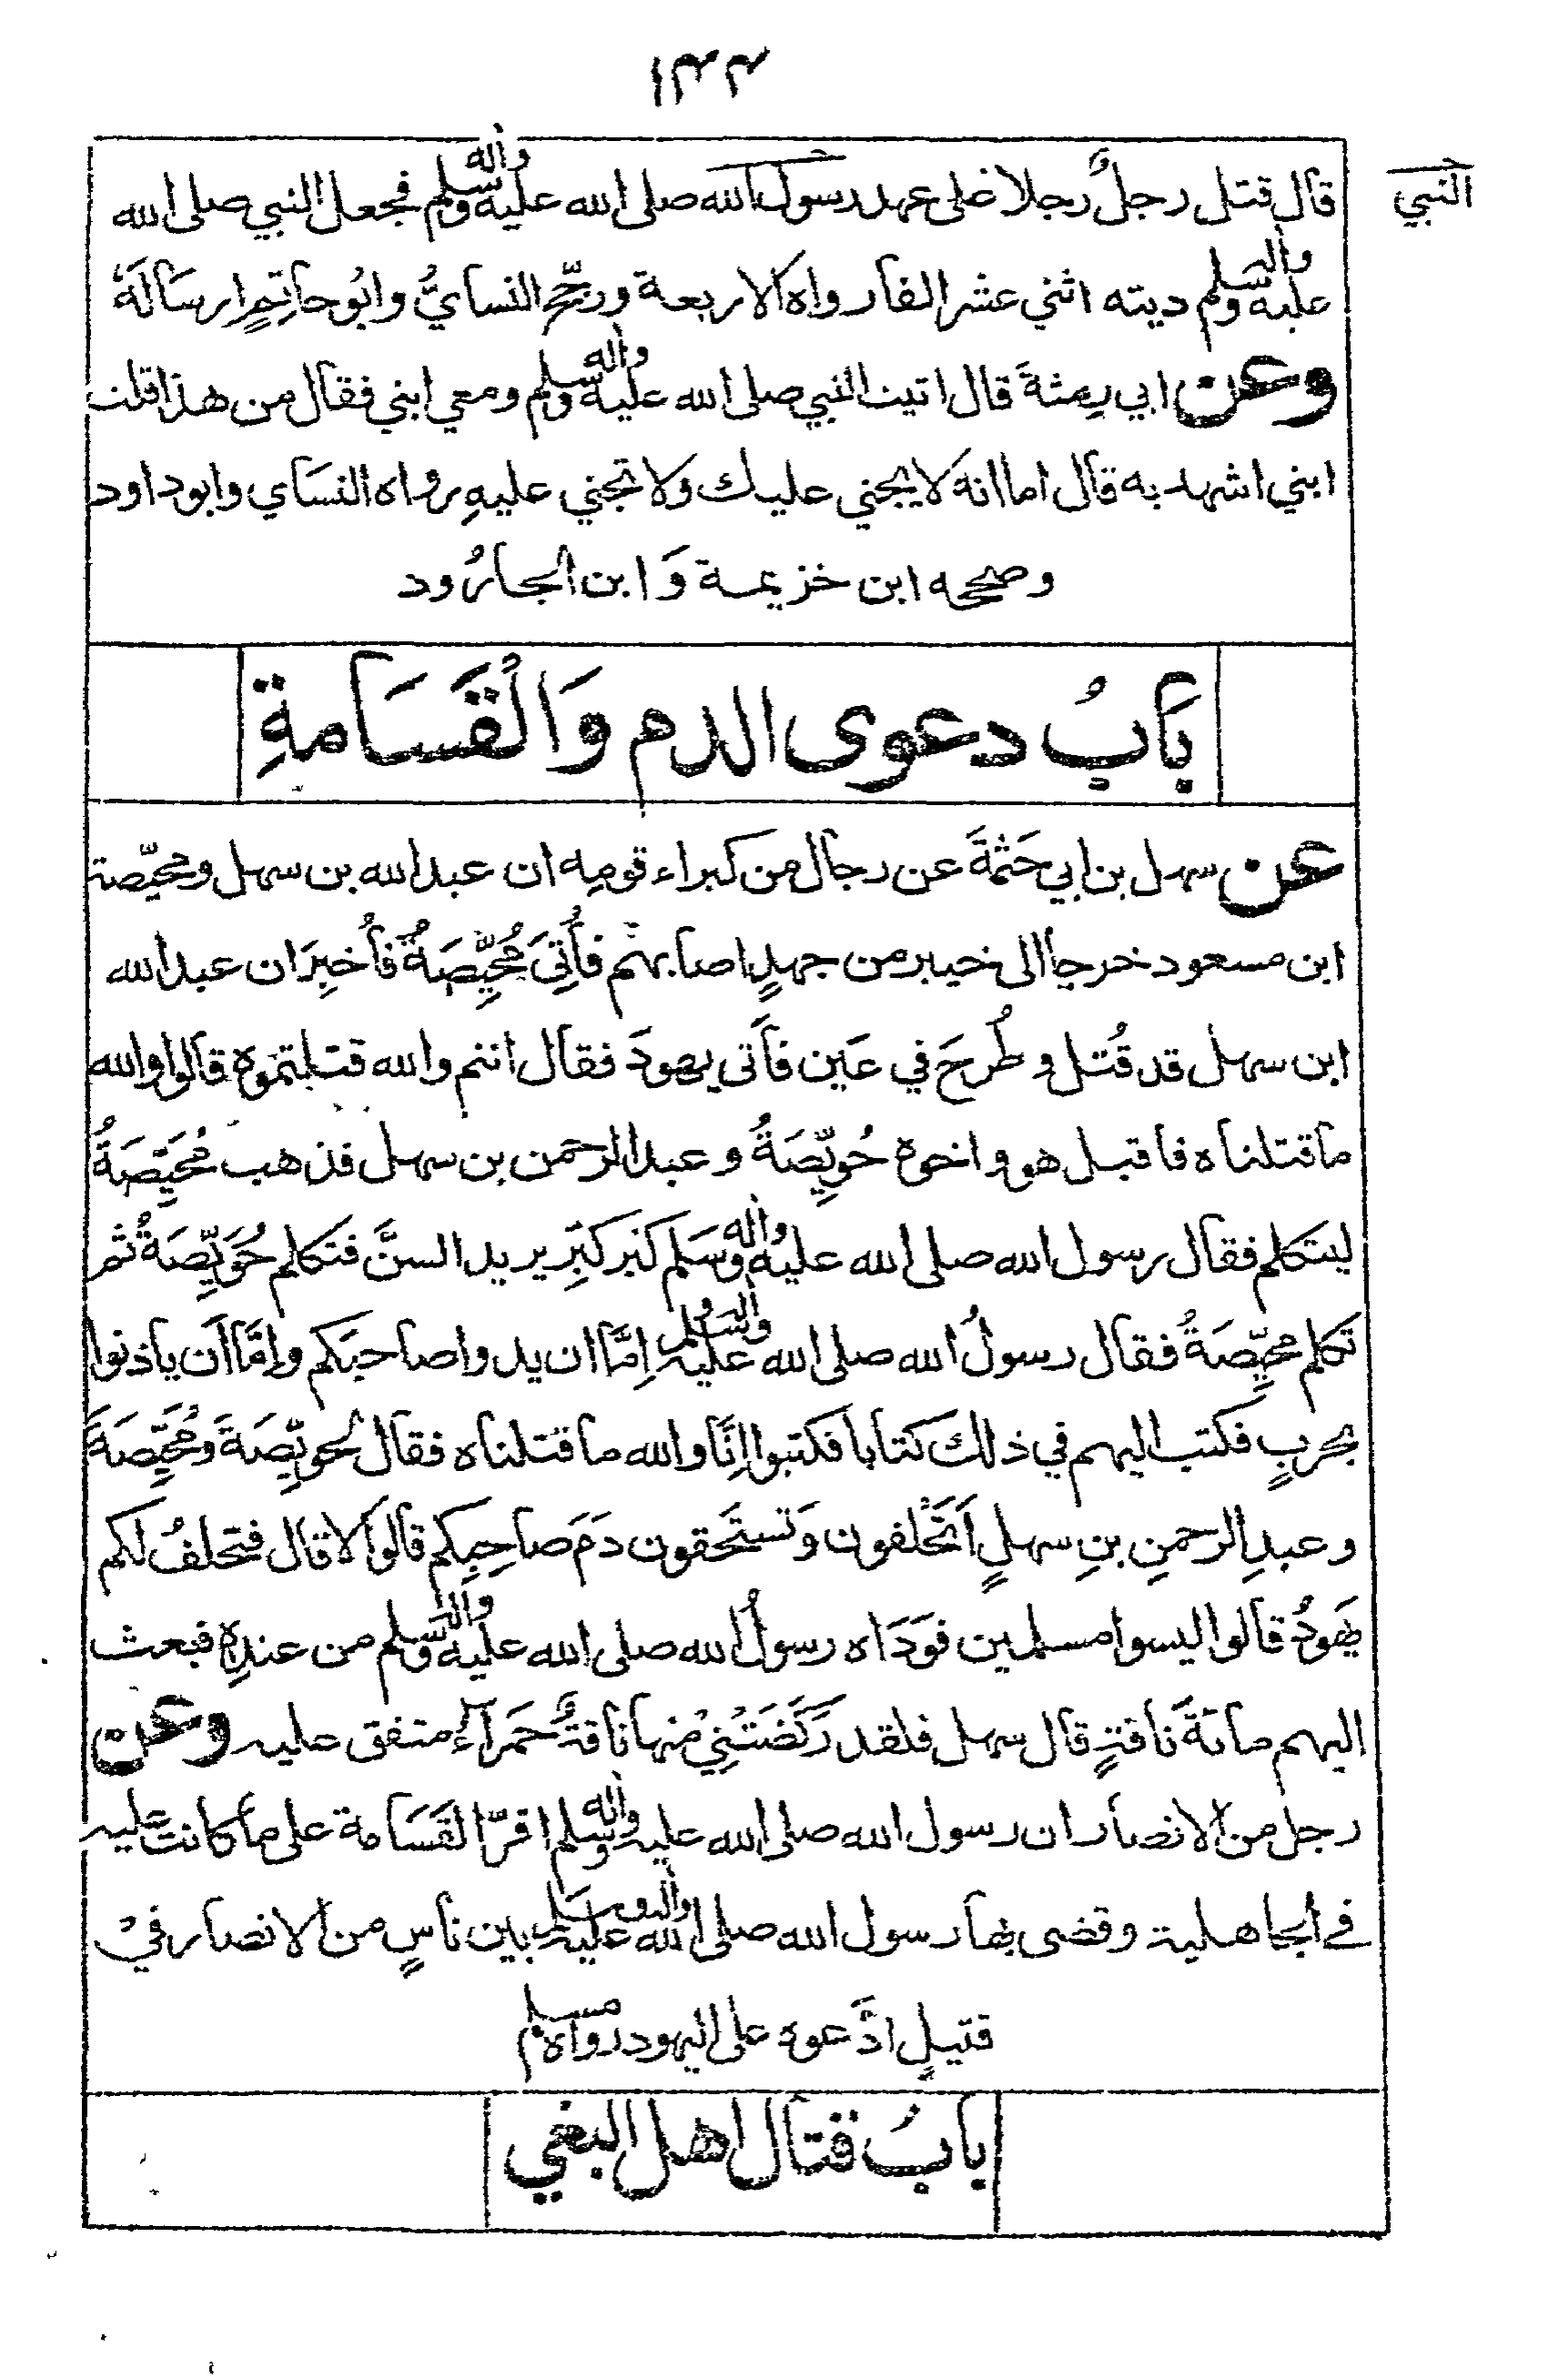 ١٣٣
قال قتل رجلٌ رجلا على عهد رسول الله صلى الله عليه واله وسلم فجعل النبي صلى الله
النبي
عليه واله وسلم ديته اثنى عشر الفا رواه الاربعة ورجّح النسايُّ وابُو حاتِمٍ ارسَالَهُ
وعن ابي رِمثةَ قال اتيت النبي صلى الله عليه واله وسلم ومعي ابني فقال من هذا قلت
ابني اشهد به قال اما انه لا يجني عليك ولا تجني عليهِ رواه النسَاي وابو داود
وصححه ابن خزيمة وَابن الجارُود
بَابُ دعوى الدم وَالقَسَامةِ
عن سهل بن ابي حَثمَةَ عن رجال من كبراء قومِه ان عبد الله بن سهل ومحيّصة
ابن مسعود خرجا الى خيبر من جهدٍ اصابهم فأُتِيَ مُحَيِّصَةُ فأُخبِرَ ان عبد الله
ابن سهل قد قُتل وطُرِحَ في عَين فأَتى يهودَ فقال انتم والله قتلتموه قالوا والله
ما قتلناه فاقبل هو واخوه حُويِّصَةُ وعبد الرحمن بن سهل فذهب مُحَيِّصَةُ
ليتكلم فقال رسول الله صلى الله عليه واله وسَلم كبر كبّر يريد السنَّ فتكلم حُوَيِّصَةُ ثم
تكلم محيِّصَةُ فقال رسولُ الله صلى الله عليه واله وسلم اِمَّا ان يدوا صاحبَكم واِمَّا اَن ياذنوا
بحربٍ فكتب اليهم في ذلك كتابا فكتبوا اِنَّا والله ما قتلناه فقال لحويِّصَةَ ومُحَيِّصَةَ
وعبدِ الرحمنِ بنِ سهلٍ اَتَحْلفون وَتستَحقون دَمَ صَاحِبِكم قالوا لا قال فتحلفُ لكم
يَهودُ قالوا ليسوا مسلمين فوَدَاه رسولُ الله صلى الله عليه واله وسلم من عندِهِ فبعث
اليهم مائةَ نَاقةٍ قال سهل فلقد رَكَضَتْنِيْ منها ناقةٌ حَمَراءُ متفق عليه وعن
رجل من الانصار ان رسول الله صلى الله عليه واله وسلم اقرّ القَسَامة على ما كانت عليه
في الجاهلية وقضى بها رسول الله صلى الله عليه واله وسلم بين ناسٍ من الانصار فيْ
قتيلٍ ادَّعوه على اليهود رواه مسلم
بابُ قتال اهل البغي